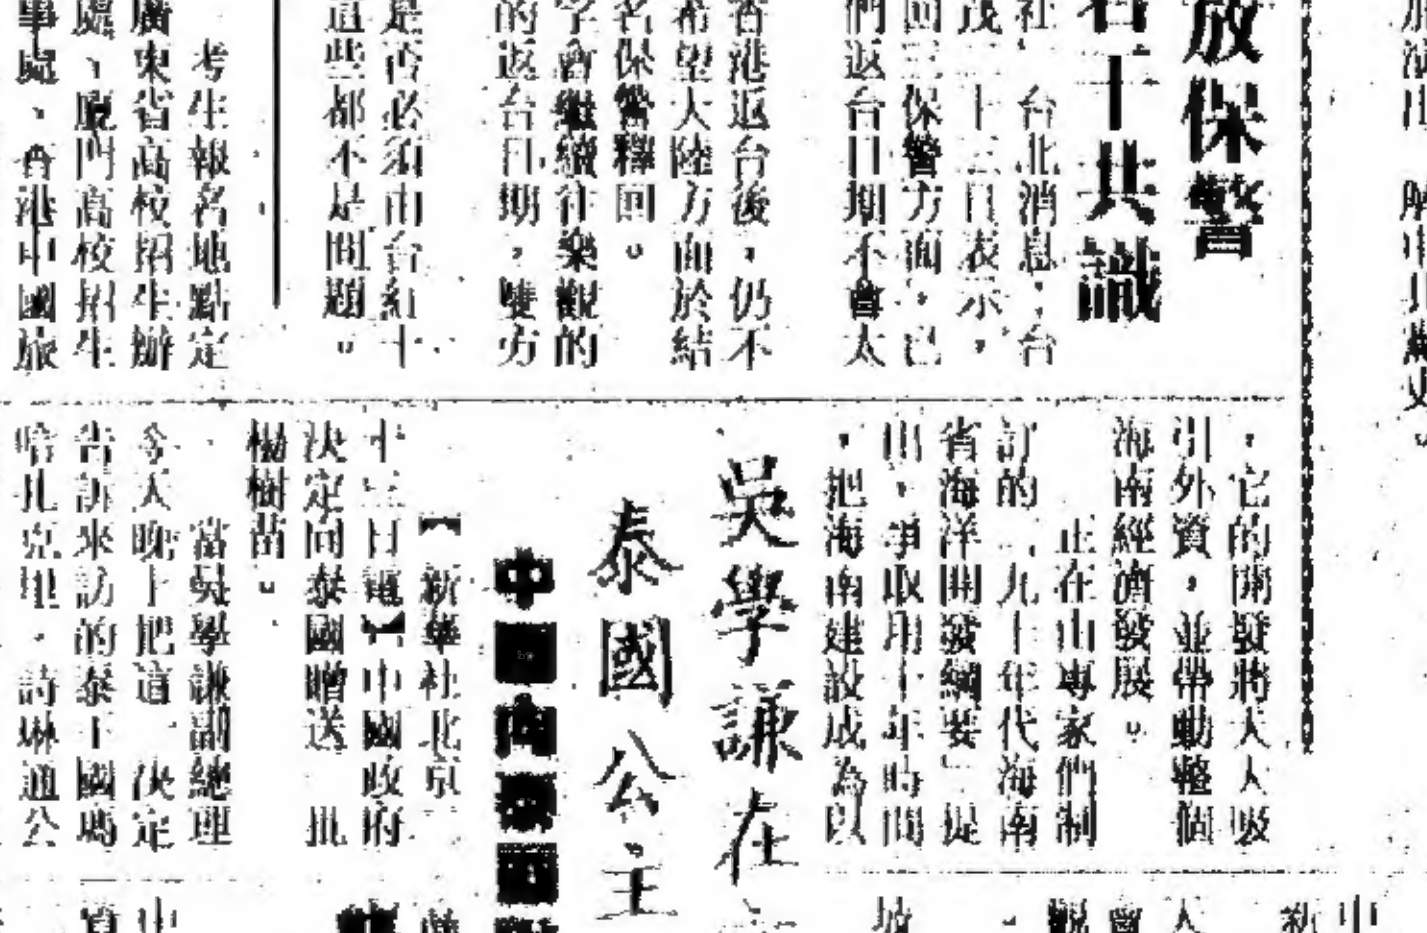 放保警
若干共識
社台北消息：台
茂二十三日表示，
回三保警方面，已
們返台日期不會太
香港返台後，仍不
希望大陸方面於結
名保警釋回。
字會繼續往樂觀的
的返台日期，雙方
是否必須由台紅十
這些都不是問題。
考生報名地點定
廣東省高校招生辦
處、廈門高校招生
事處、香港中國旅
，它的開發將大大吸
引外資，並帶動整個
海南經濟發展。
正在由專家們制
訂的「九十年代海南
省海洋開發綱要」提
出，爭取用十年時間
，把海南建設成為以
吳學謙在
泰國公主
中國向泰國
【新華社北京二
十三日電】中國政府
決定向泰國贈送一批
楊樹苗。
當吳學謙副總理
今天晚上把這一決定
告訴來訪的泰王國瑪
哈扎克里·詩琳通公